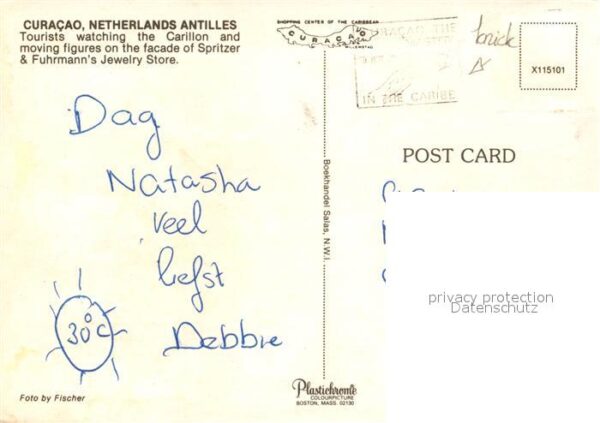 CURAÇAO, NETHERLANDS ANTILLES
Tourists watching the Carillon and
moving figures on the facade of Spritzer
& Fuhrmann's Jewelry Store.
SHOPPING CENTER OF THE CARIBBEAN
CURAÇAO
IN THE CARIBE
X115101
POST CARD
Dag
Natasha
veel
liefst
Debbie
30°C
Boekhandel Salas, N.W.I.
privacy protection
Datenschutz
Foto by Fischer
Plastichrome
COLOURPICTURE
BOSTON, MASS. 02130